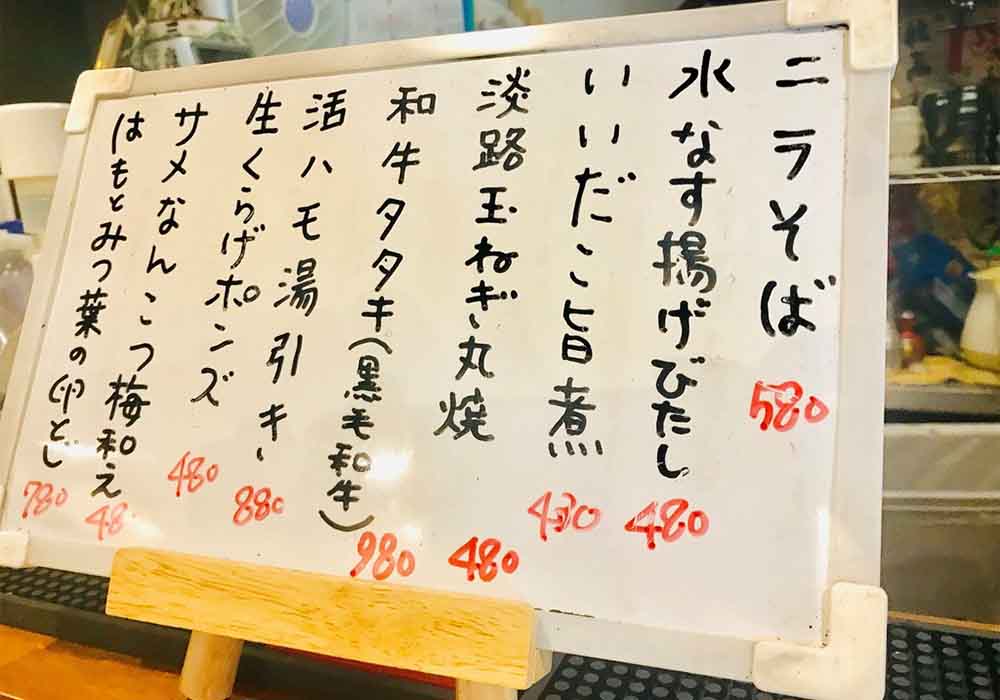 ニラそば 580
水なす揚げびたし 480
いいだこ旨煮 430
淡路玉ねぎ丸焼 480
和牛タタキ(黒毛和牛) 980
活ハモ湯引キ 880
生くらげポンズ 480
サメなんこつ梅和え 48
はもとみつ葉の卵とじ 780